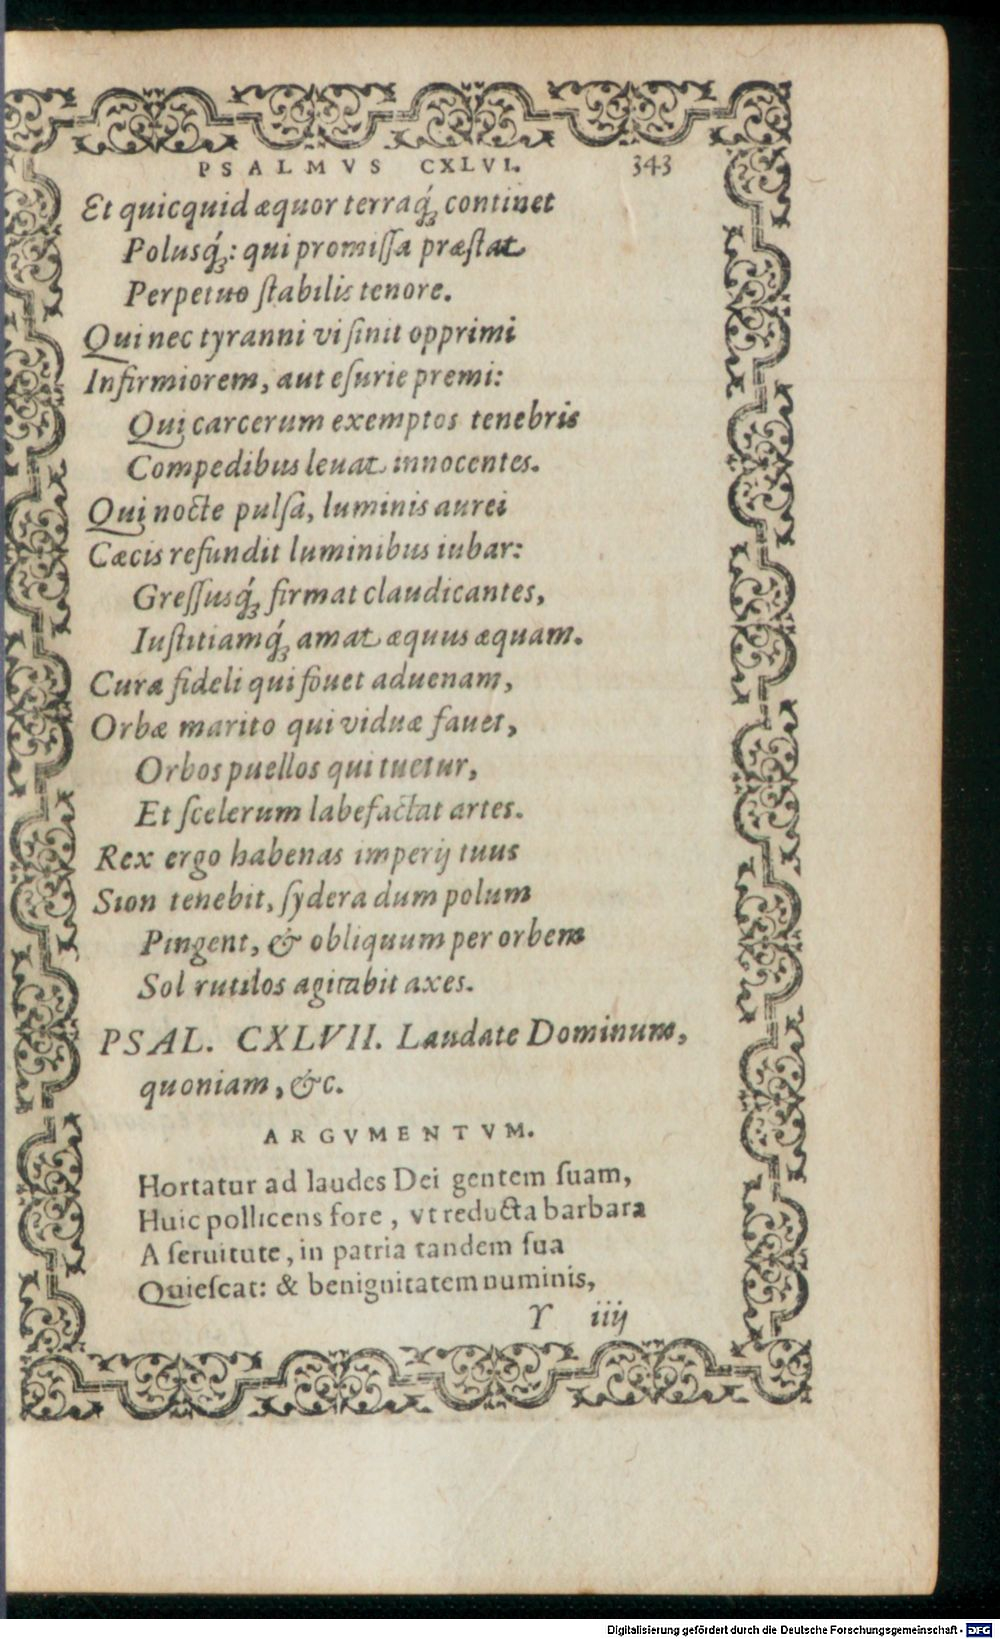 PSALMVS CXLVI. 343
Et quicquid æquor terraq́ꝫ continet
Polusq́ꝫ: qui promiſſa præſtat
Perpetuo ſtabilis tenore.
Qui nec tyranni vi ſinit opprimi
Infirmiorem, aut eſurie premi:
Qui carcerum exemptos tenebris
Compedibus leuat innocentes.
Qui nocte pulſa, luminis aurei
Cæcis refundit luminibus iubar:
Greſſusq́ꝫ firmat claudicantes,
Iuſtitiamq́ꝫ amat æquus æquam.
Cura fideli qui fouet aduenam,
Orbæ marito qui viduæ fauet,
Orbos puellos qui tuetur,
Et ſcelerum labefactat artes.
Rex ergo habenas imperij tuus
Sion tenebit, ſydera dum polum
Pingent, & obliquum per orbem
Sol rutilos agitabit axes.
PSAL. CXLVII. Laudate Dominum,
quoniam, &c.
ARGVMENTVM.
Hortatur ad laudes Dei gentem ſuam,
Huic pollicens fore, vt reducta barbara
A ſeruitute, in patria tandem ſua
Quieſcat: & benignitatem numinis,
Y iiij
Digitalisierung gefördert durch die Deutsche Forschungsgemeinschaft - DFG